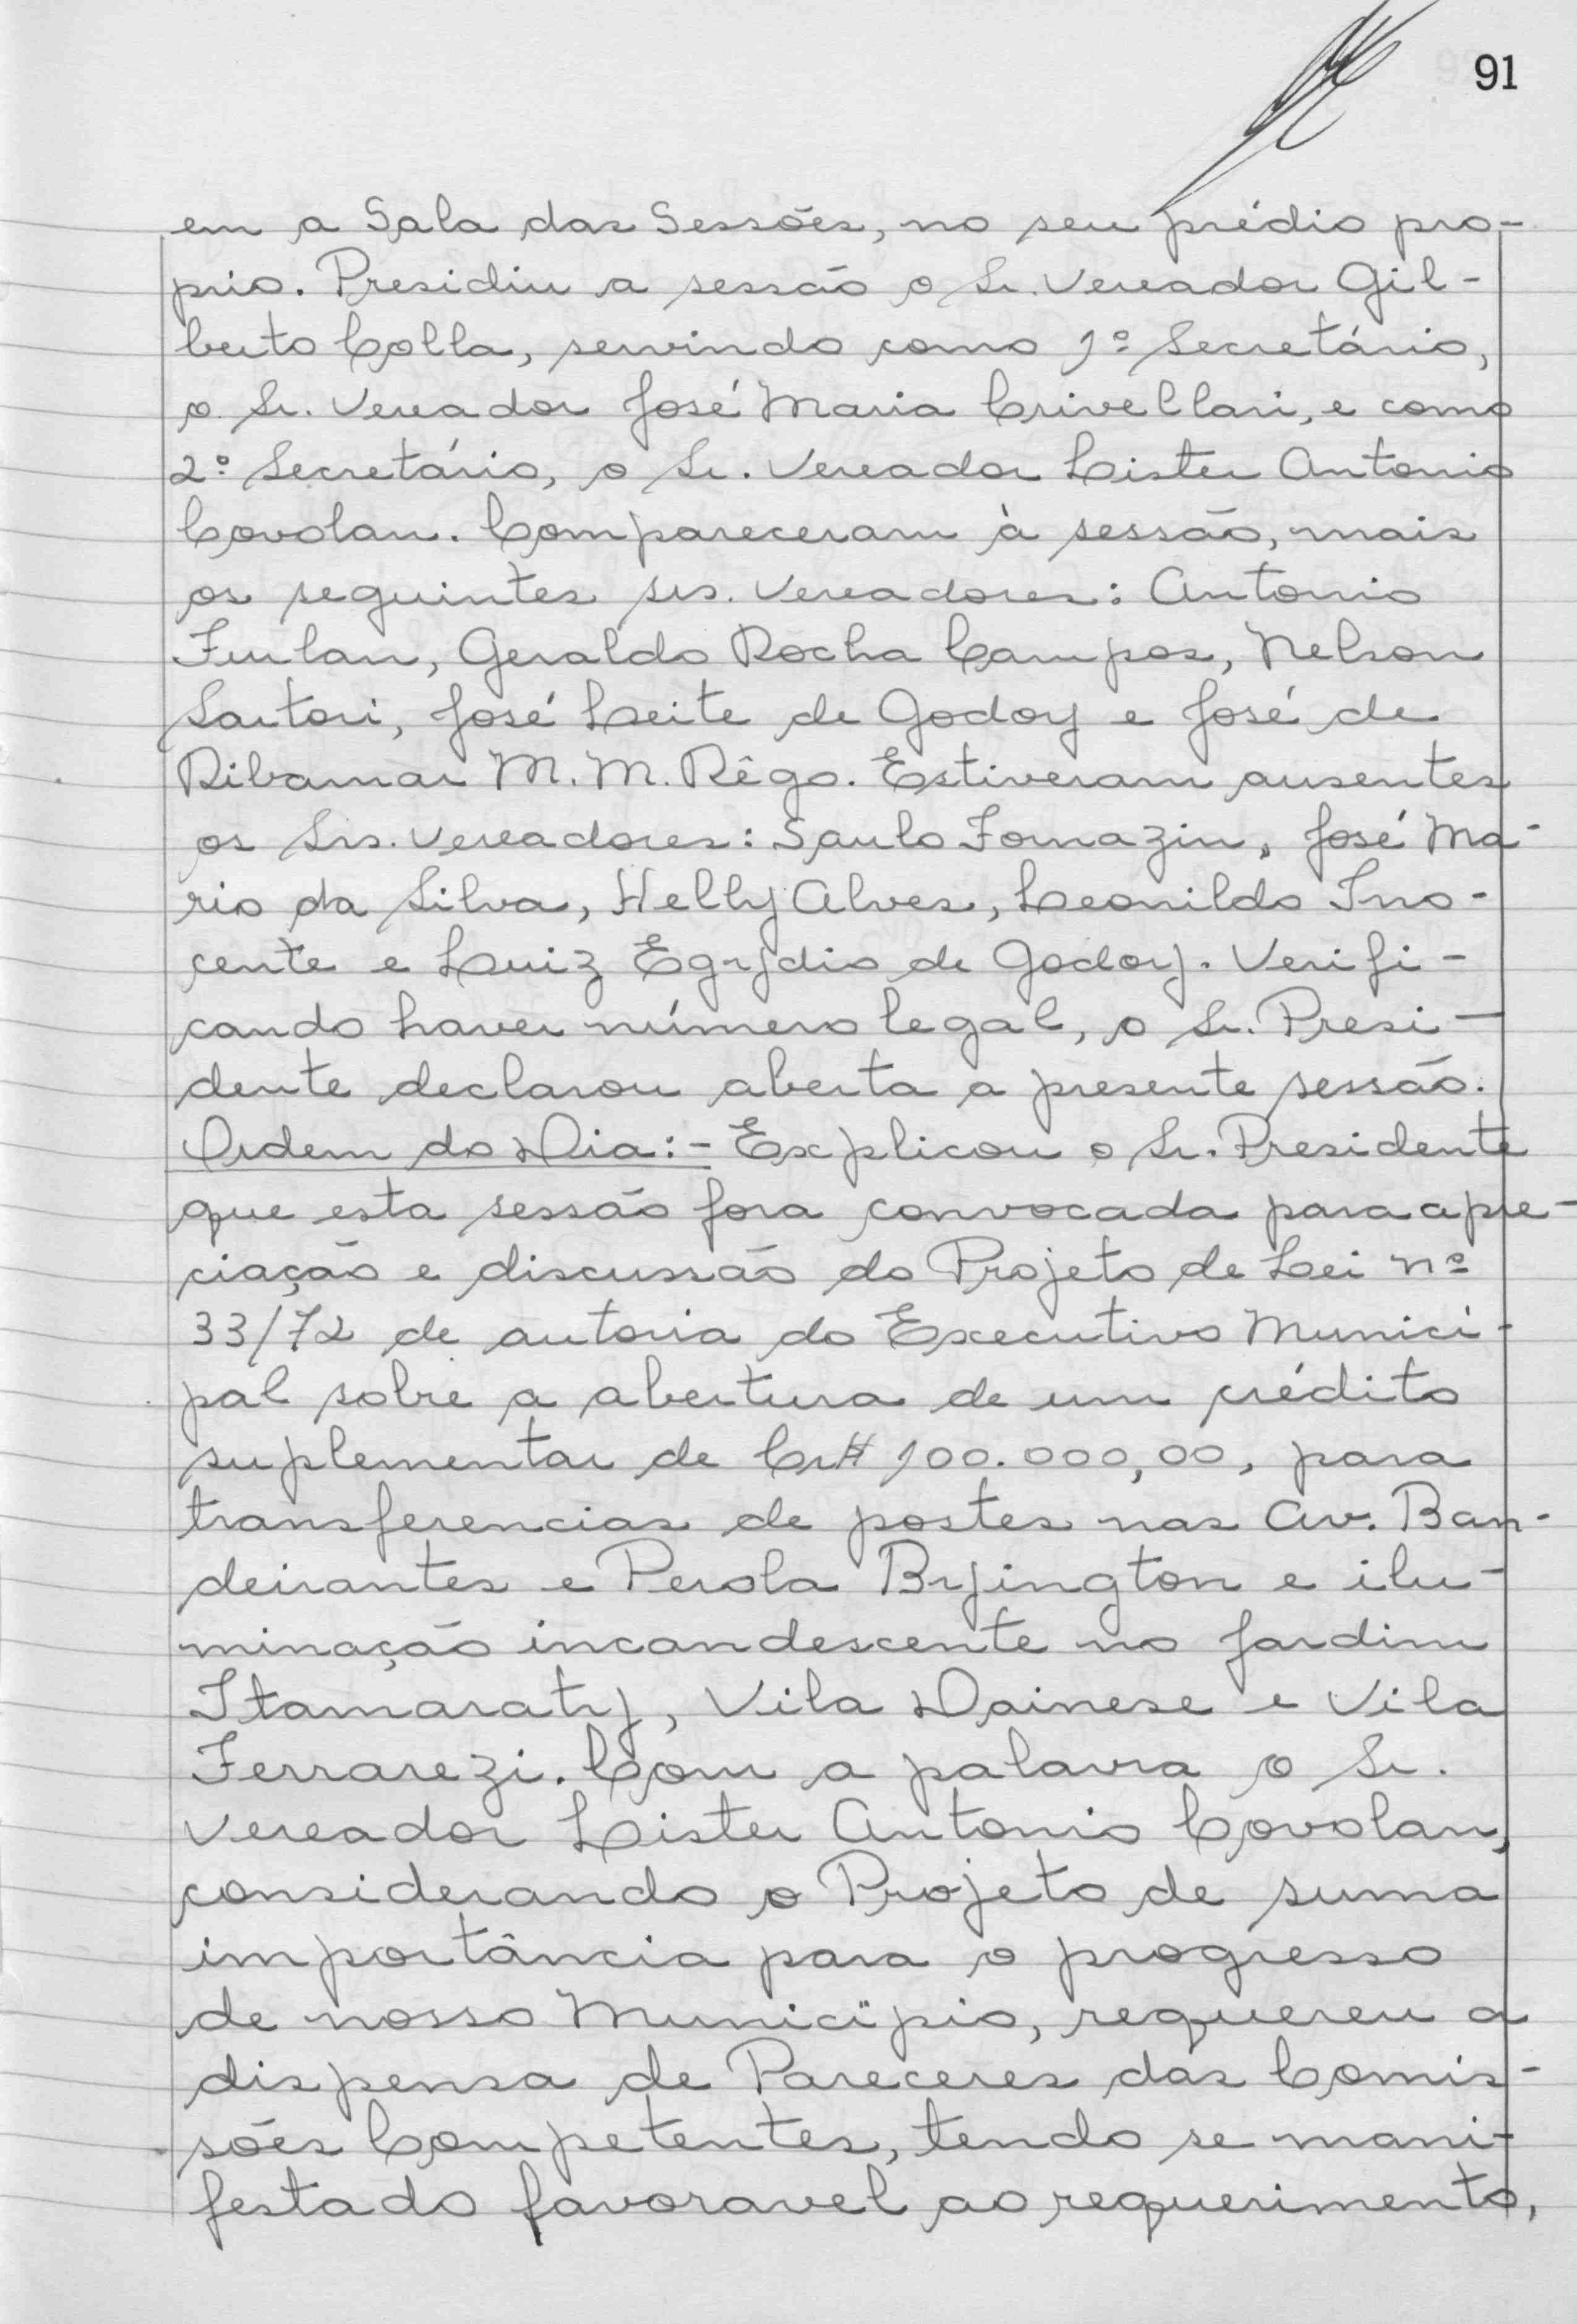 91
em a Sala das Sessões, no seu prédio pro-
prio. Presidiu a sessão o Sr. Vereador Gil-
berto Colla, servindo como 1º Secretário,
o Sr. Vereador José Maria Crivellari, e como
2º Secretário, o Sr. Vereador Lister Antonio
Covolan. Compareceram à sessão, mais
os seguintes srs. Vereadores: Antonio
Furlan, Geraldo Rocha Campos, Nelson
Sartori, José Leite de Godoy e José de
Ribamar M. M. Rêgo. Estiveram ausentes
os Srs. Vereadores: Saulo Fornazin, José Má-
rio da Silva, Helly Alves, Leonildo Ino-
cente e Luiz Egydio de Godoy. Verifi-
cando haver número legal, o Sr. Presi-
dente declarou aberta a presente sessão.
Ordem do Dia:- Explicou o Sr. Presidente
que esta sessão fora convocada para apre-
ciação e discussão do Projeto de Lei nº
33/72 de autoria do Executivo Munici-
pal sobre a abertura de um crédito
suplementar de Cr$ 100.000,00, para
transferencias de postes nas Av. Ban-
deirantes e Perola Byington e ilu-
minação incandescente no Jardim
Itamaraty, Vila Dainese e Vila
Ferrarezi. Com a palavra o Sr.
Vereador Lister Antonio Covolan,
considerando o Projeto de suma
importância para o progresso
de nosso Municipio, requereu a
dispensa de Pareceres das Comis-
sões Competentes, tendo se mani-
festado favoravel ao requerimento,